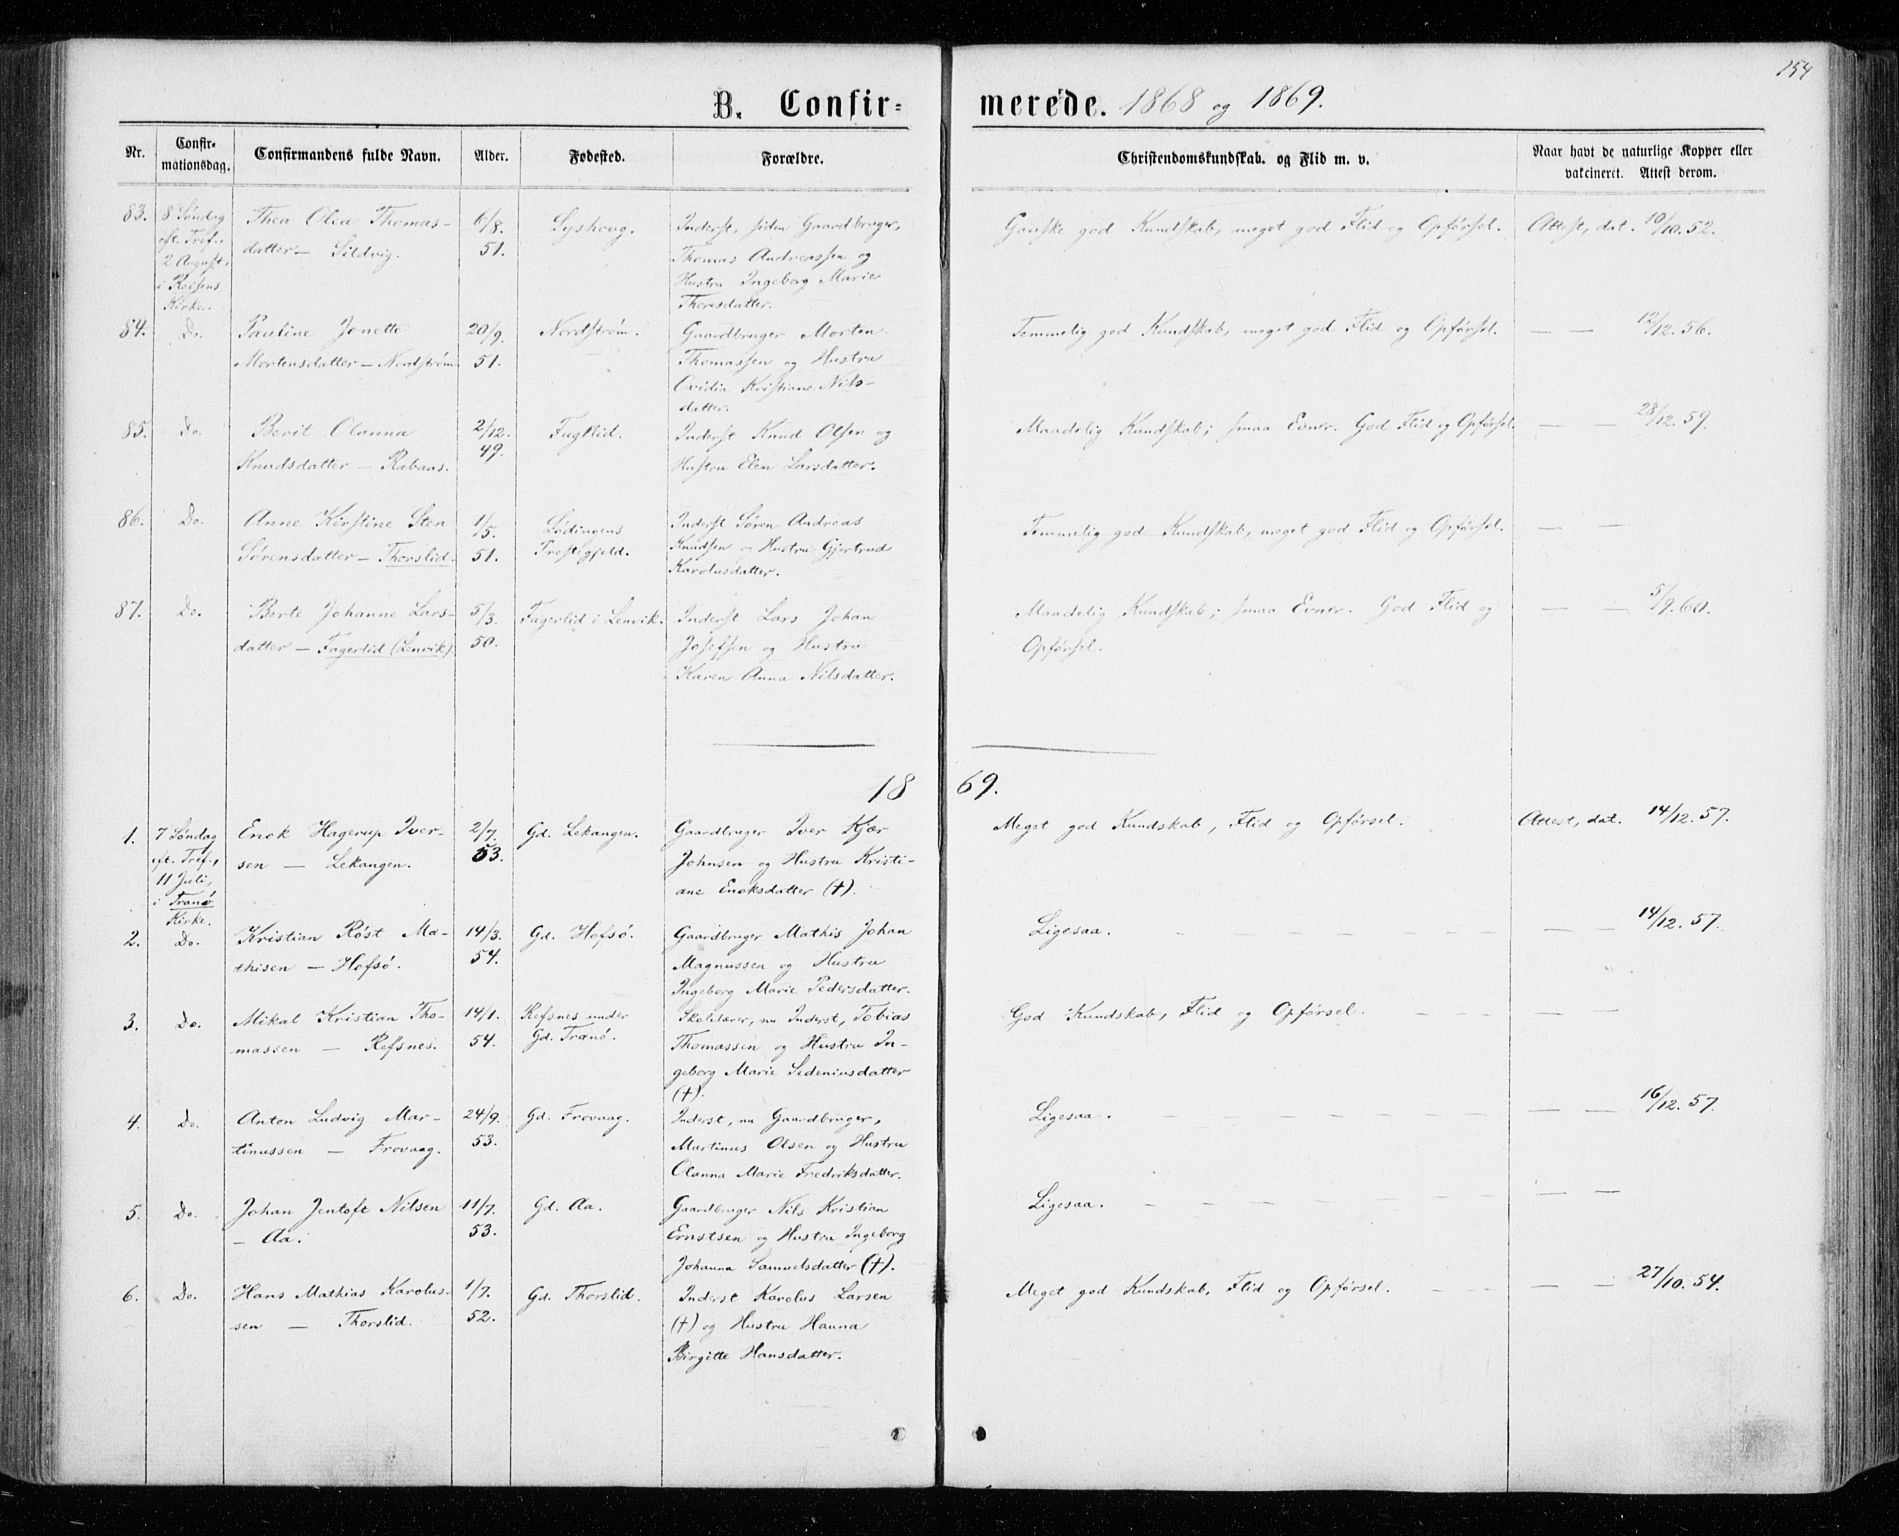 154
B. Confirmerede. 1868 og 1869.
Nr. Confirmationsdag. Confirmandens fulde Navn. Alder. Fødested. Forældre. Christendomskundskab. og Flid m. v. Naar havt de naturlige Kopper eller vakcineret. Attest derom.
83. 8 Søndag Thea Olea Thomas- 6/8. Lyshoug. Inderst, siden Gaardbruger, Ganske god Kundskab, meget god Flid og Opførsel. Attest, dat. 10/10. 52.
eft. Tref., datter — Sildvig. 51. Thomas Andreassen og
2 August, Hustru Ingeborg Marie
i Reisens Thoresdatter.
Kirke.
84. Do. Pauline Jonette 20/9. Nordstrøm. Gaardbruger Morten Temmelig god Kundskab, meget god Flid og Opførsel. — — 12/12. 56.
Mortensdatter — Nordstrøm. 51. Thomassen og Hustru
Ovidia Kristiane Nils-
datter.
85. Do. Berit Olanna 2/12. Fuglid. Inderst Knud Olsen og Maadelig Kundskab; smaa Evner. God Flid og Opførsel. 28/12. 59.
Knudsdatter — Rabaas. 49. Hustru Elen Larsdatter.
86. Do. Anne Kirstine Sten 1/5. Lødingens Inderst Søren Andreas Temmelig god Kundskab, meget god Flid og Opførsel. — —
Sørensdatter — Thorslid. 51. Præstegjeld. Knudsen og Hustru Gjertrud
Karolusdatter.
87. Do. Berte Johanne Lars- 5/3. Fagerlid i Lenvik. Inderst Lars Johan Maadelig Kundskab; smaa Evner. God Flid og — — 5/9. 60.
datter — Fagerlid (Lenvik). 50. Josefsen og Hustru Opførsel.
Karen Anna Nilsdatter.
1869.
1. 7 Søndag Enok Hagerup Iver- 2/7. Gd. Lekangen. Gaardbruger Iver Kjær Meget god Kundskab, Flid og Opførsel. Attest, dat. 14/12. 57.
eft. Tref., sen — Lekangen. 53. Johnsen og Hustru Kristi-
11 Juli, ane Enoksdatter (†).
i Tranø
Kirke.
2. Do. Kristian Røst Ma- 14/3. Gd. Hofsø. Gaardbruger Mathis Johan Ligesaa. — — — — — — — 14/12. 57.
thisen — Hofsø. 54. Magnussen og Hustru
Ingeborg Marie Pedersdatter.
3. Do. Mikal Kristian Tho- 14/1. Refsnes under Skolelærer, nu Inderst, Tobias God Kundskab, Flid og Opførsel. — — — — —
massen — Refsnes. 54. Gd. Tranø. Thomassen og Hustru In-
geborg Marie Sedeniusdatter
(†).
4. Do. Anton Ludvig Mar- 24/9. Gd. Frovaag. Inderst, nu Gaardbruger, Ligesaa. — — — — — — — — 16/12. 57.
tinussen — Frovaag. 53. Martinus Olsen og Hustru
Olanna Marie Fredriksdatter.
5. Do. Johan Jentoft Nilsen 11/7. Gd. Aa. Gaardbruger Nils Kristian Ligesaa. — — — — — — — —
— Aa. 53. Ernstsen og Hustru Ingeborg
Johanna Samuelsdatter (†).
6. Do. Hans Mathias Karolus- 1/7. Gd. Thorslid. Inderst Karolus Larsen Meget god Kundskab, Flid og Opførsel. — — — — 27/10. 54.
sen — Thorslid. 52. (†) og Hustru Hanna
Birgitte Hansdatter.